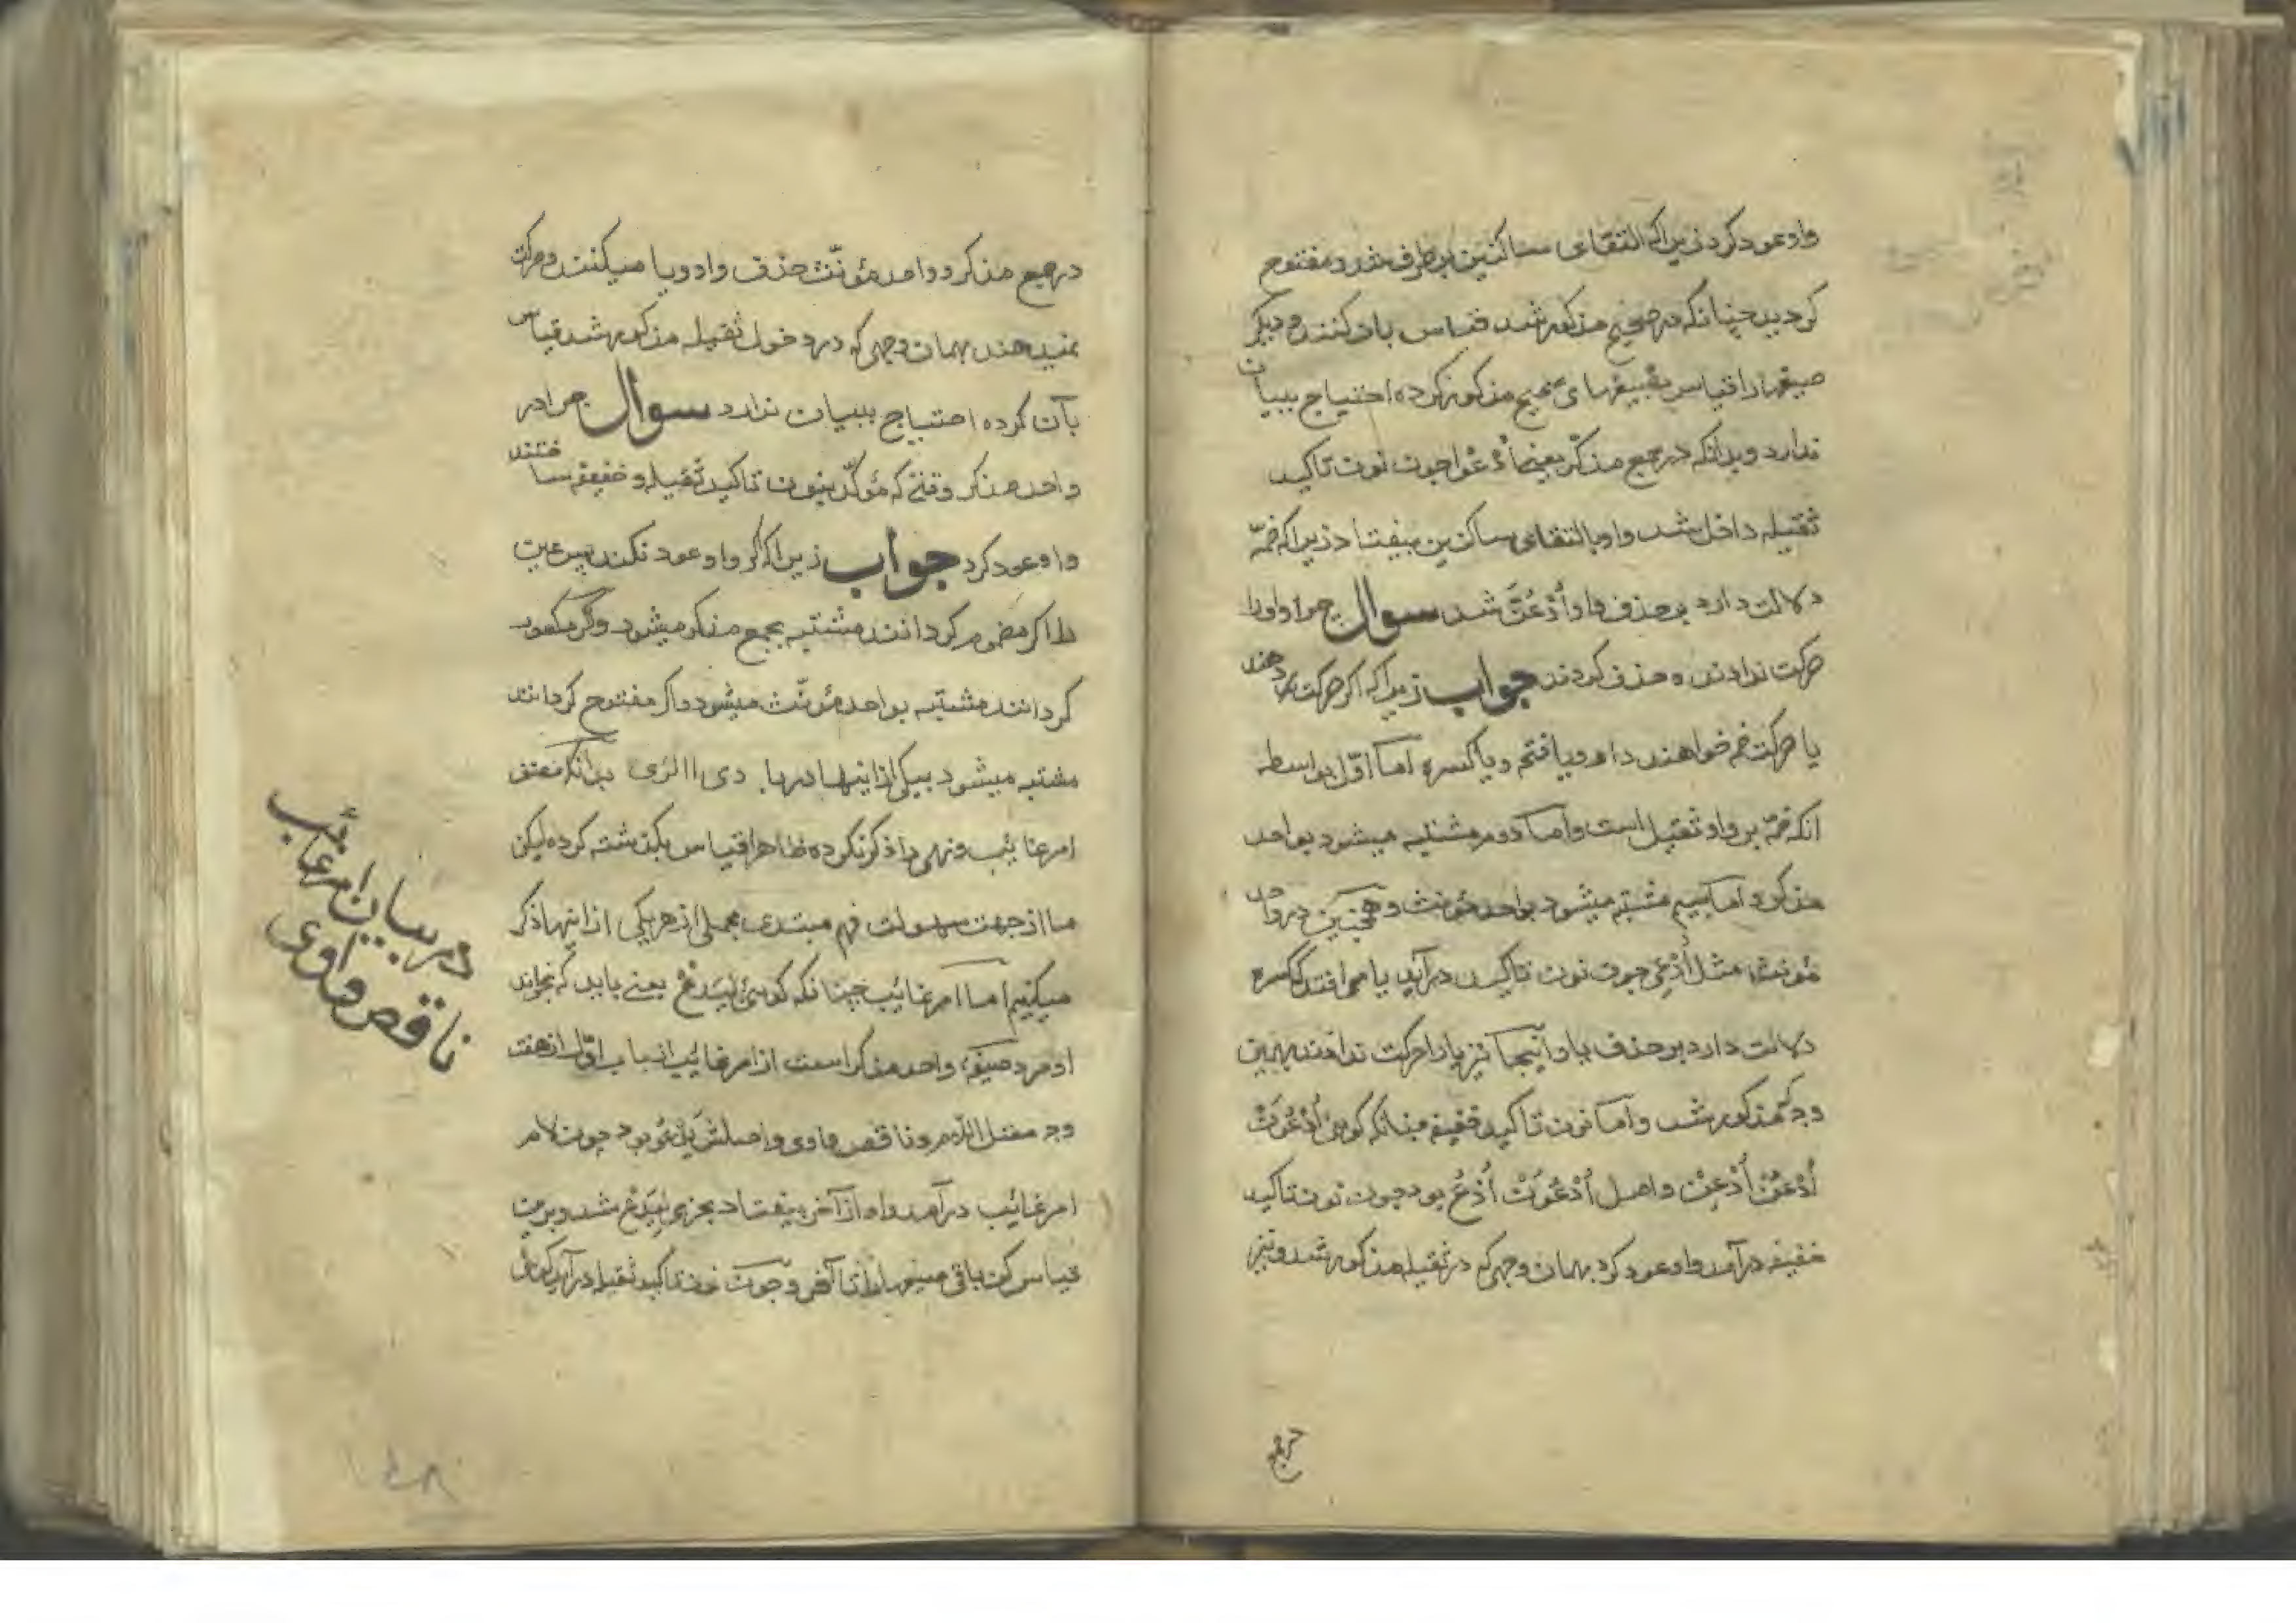 واو عود کرد زیرا که التقای ساکنین بر طرف شد و مفتوح
کردید چنانکه در صحیح مذکور شد قیاس باد کنند و دیکر
صیغها را قیاس بصیغهای صحیح مذکور کرده احتیاج ببیان
ندارد و بدانکه در جمع مذکر یعنی اُدْعُوا چون نون تاکید
ثقیله داخل شد واو بالتقای ساکنین بیفتاد زیرا که ضمّه
دلالت دارد بر حذف واو اُدْعُنَّ شد سوال چرا واو را
حرکت ندادند و حذف کردند جواب زیرا که اکر حرکت دهند
یا حرکت ضم خواهند داد و یا فتح و یا کسره اما اوّل بواسطه
آنکه ضمّه بر واو ثقیل است و اما دوم مشتبه میشود بواحد
مذکر و اما سیم مشتبه میشود بواحد مؤنث و همچنین در واحد
مؤنث مثل اُدْعِی چون نون تاکید در آید یا می افتد که کسره
دلالت دارد بر حذف یا و آنجا نیز یا را حرکت ندادند بهمین
وجه که مذکور شد و اما نون تاکید خفیفه چنانکه کوئی اُدْعُوَنْ
اُدْعُنْ اُدْعِنْ و اصل اُدْعُوَنْ اُدْعُ بود چون نون تاکید
خفیفه در آمد واو عود کرد بهمان وجهی که در ثقیله مذکور شد و نیز
در جمع مذکر و واحد مؤنّث حذف واو و یا میکنند و حرکت
نمیدهند بهمان وجهی که در دخول ثقیله مذکور شد قیاس
بآن کرده احتیاج ببیان ندارد سوال چرا در
واحد مذکر وقتی که مؤکّد بنون تاکید ثقیله و خفیفه ساختند
واو عود کرد جواب زیرا که اکر واو عود نکند پس عین
را اکر مضموم کردانند مشتبه بجمع مذکر میشود و اکر مکسور
کردانند مشتبه بواحد مؤنّث میشود و اکر مفتوح کردانند
مشتبه میشود بیکی از اینها در بدانکه مصنف
امر غایب و نهی را ذکر نکرده ظاهرا قیاس بکذشته کرده لیکن
ما از جهت سهولت فهم مبتدی مجملی از هر یکی از اینها ذکر
میکنیم اما امر غائب چنانکه کوئی لِیَدْعُ یعنی باید که بخواند
او مرد صیغه واحد مذکر است از امر غایب از باب اوّل از هفت
وجه معتل اللام و ناقص واوی و اصلش یَدْعُو بود چون لام
امر غائب در آمد واو از آخر بیفتاد بجزمی لِیَدْعُ شد و برین
قیاس کن باقی صیغها را تا آخر و چون نون تاکید ثقیله در آید
در بیان امر غائب
ناقص واوی